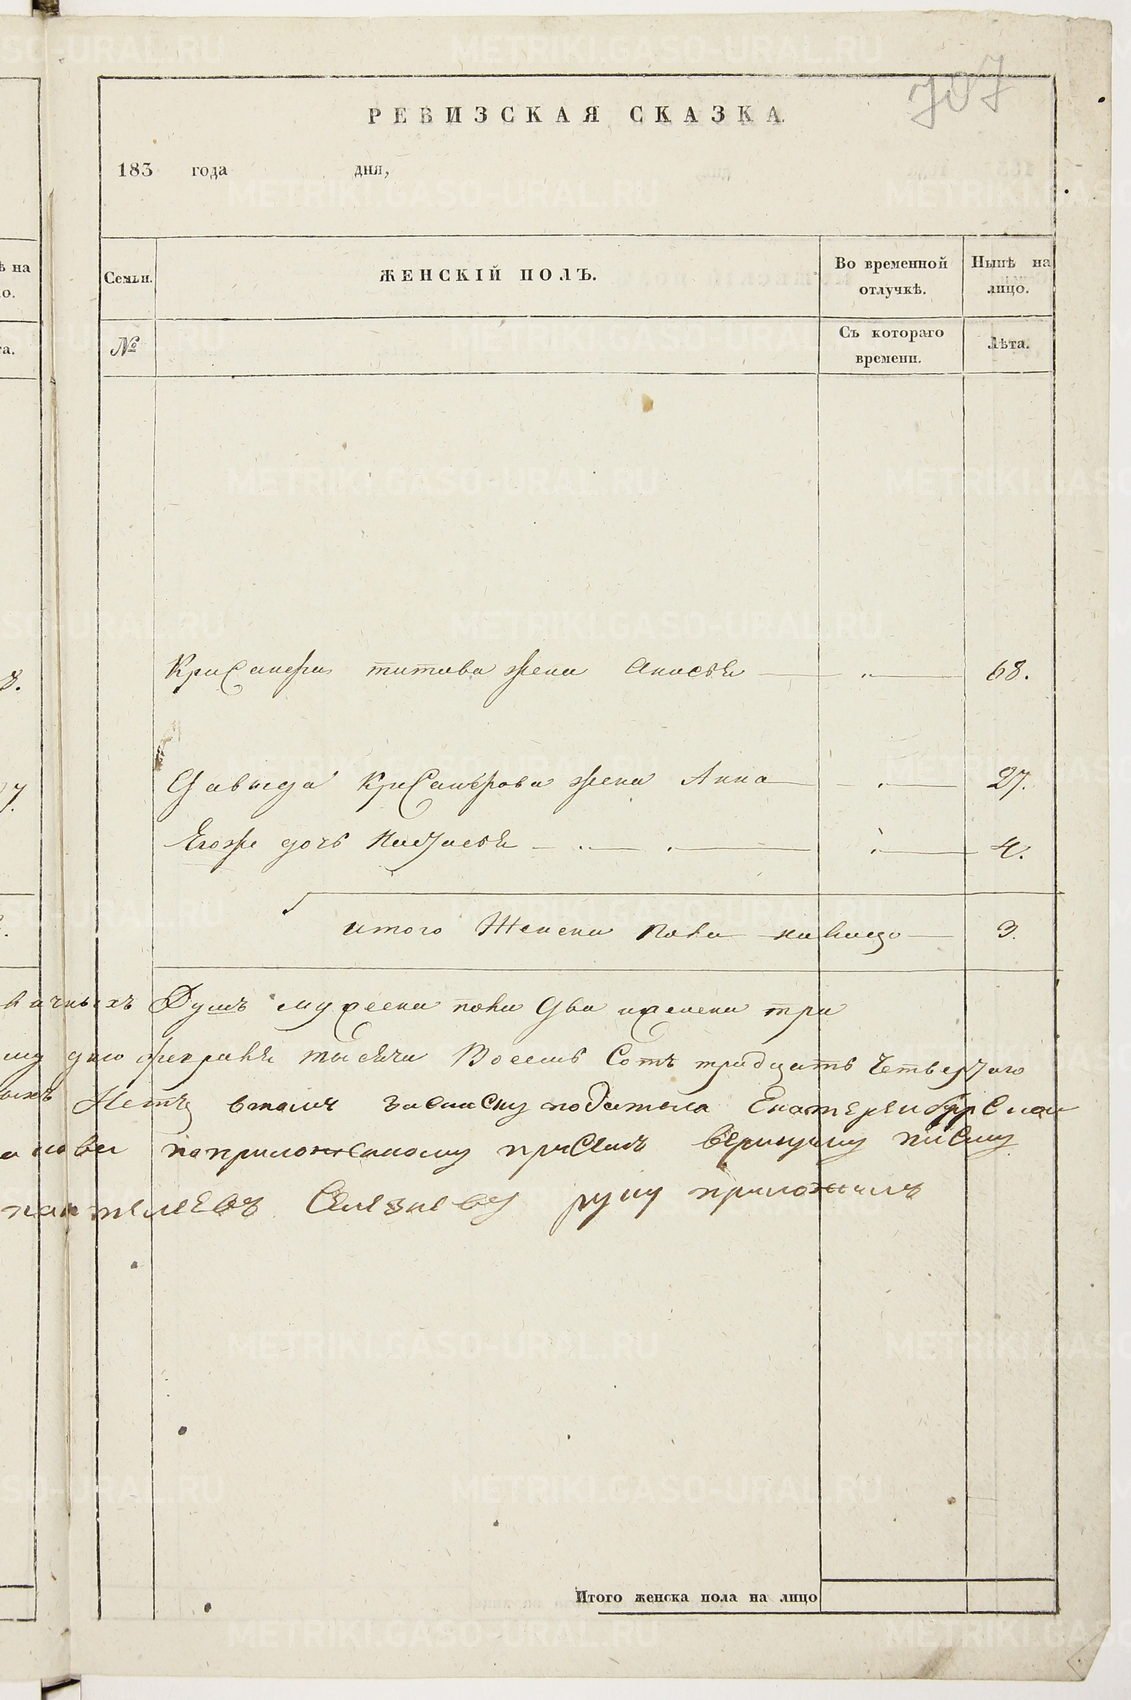 707
РЕВИЗСКАЯ СКАЗКА
183 года дня,
Семьи. ЖЕНСКІЙ ПОЛЪ. Во временной отлучкѣ. Нынѣ на лицо.
№ Съ котораго времени. Лѣта.
Крисанфа титова жена Анисья " 68.
Давыда Крисанфова жена Анна " 27.
Егоже дочь Настасья " 4.
итого Женска пола налицо 3.
Душъ мужеска пола два женска три
дню февраля тысячи Восемь Сотъ тридцать четвертаго
Нетъ втомъ подписку Екатеренбургской
поприложенному присемъ верющему писму
Селезневъ руку приложилъ
Итого женска пола на лицо
METRIKI.GASO-URAL.RU